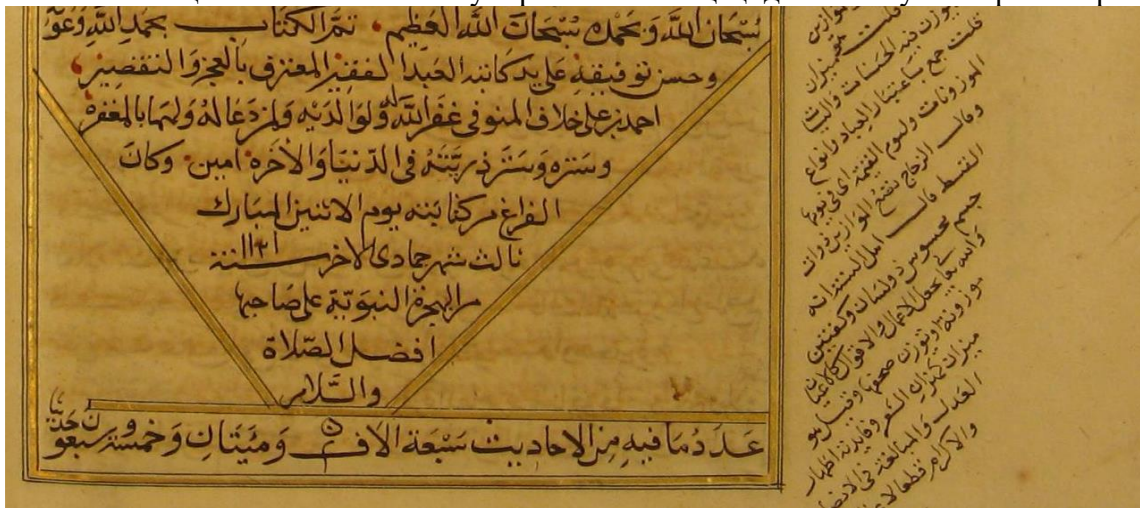 سُبْحَانَ اللهِ وَبِحَمْدِهِ سُبْحَانَ اللهِ العَظِيمِ • تم الكتاب بحمد الله وعونه
وحسن توفيقه على يد كاتبه العبد الفقير المعترف بالعجز والتقصير
احمد بن على خلاف المنوفى غفر الله له ولوالديه ولمن دعا له ولهما بالمغفره
وستره وستر ذريته فى الدنيا والاخره امين • وكان
الفراغ من كتابته يوم الاثنين المبارك
ثالث شهر جمادى الاخر سنة ١١٢١
من الهجرة النبوية على صاحبها
افضل الصلاة
والسلام
عدد ما فيه من الاحاديث سبعة الاف ومئتان وخمسة وسبعون حديثا
فيه الحسنات
قلت جمع باعتبار العباد وانواع
الموزونات وليوم القيمة اى فى يوم
وقال الزجاج
القسط قال اهل السنة انه
جسم محسوس ذو لسان وكفتين
والله تعالى يجعل الاعمال والاقوال كالاعيان
موزونة او توزن صحفها وقيل هو
ميزان كميزان الشعر وفايدته اظهار
العدل والمبالغة فى